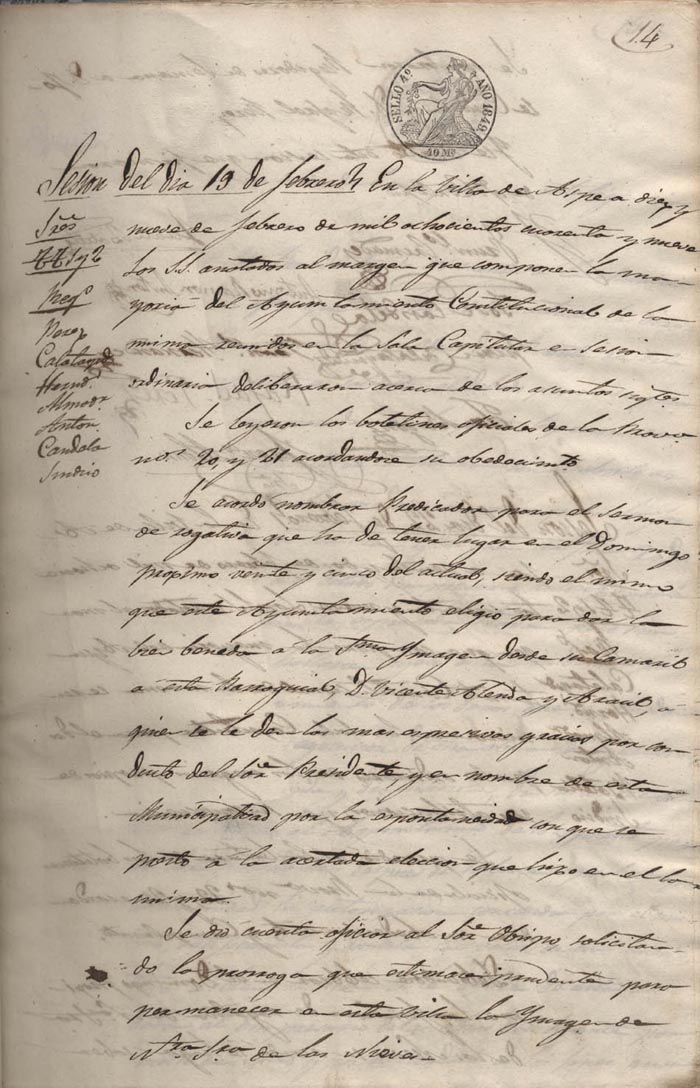 14
SELLO 4º AÑO 1849
40 Ms
Sesion del dia 19 de febrero
En la Villa de Aspe a diez y
Sres
Presid
Perez
Calatayud
Hernz
Almodr
Anton
Candela
Sindico
nueve de febrero de mil ochocientos cuarenta y nueve
Los SS. anotados al margen que componen la ma-
yoria del Ayuntamiento Constitucional de la
misma reunidos en la Sala Capitular en sesion
ordinaria deliberaron acerca de los asuntos sigtes
Se leyeron los boletines oficiales de la Prova
nos 20, y 21 acordandose su obedecimto
Se acordo nombrar Predicador para el Sermon
de rogativa que ha de tener lugar en el Domingo
proximo veinte y cinco del actual, siendo el mismo
que este Ayuntamiento eligio para dar la
bien benida a la Sma Ymagen desde su Camaril
a esta Parroquial, D. Vicente Alenda y
quien se le den las mas espresivas gracias por con
ducto del Sor Presidente, y en nombre de esta
Municipalidad por la espontaneidad con que se
presto a la acertada eleccion que hizo en el la
misma.
Se dio cuenta oficiar al Sor Obispo, solicitan-
do la prorroga que estimare prudente para
permanecer en esta Villa la Ymagen de
Ntra Sra de las Nieves